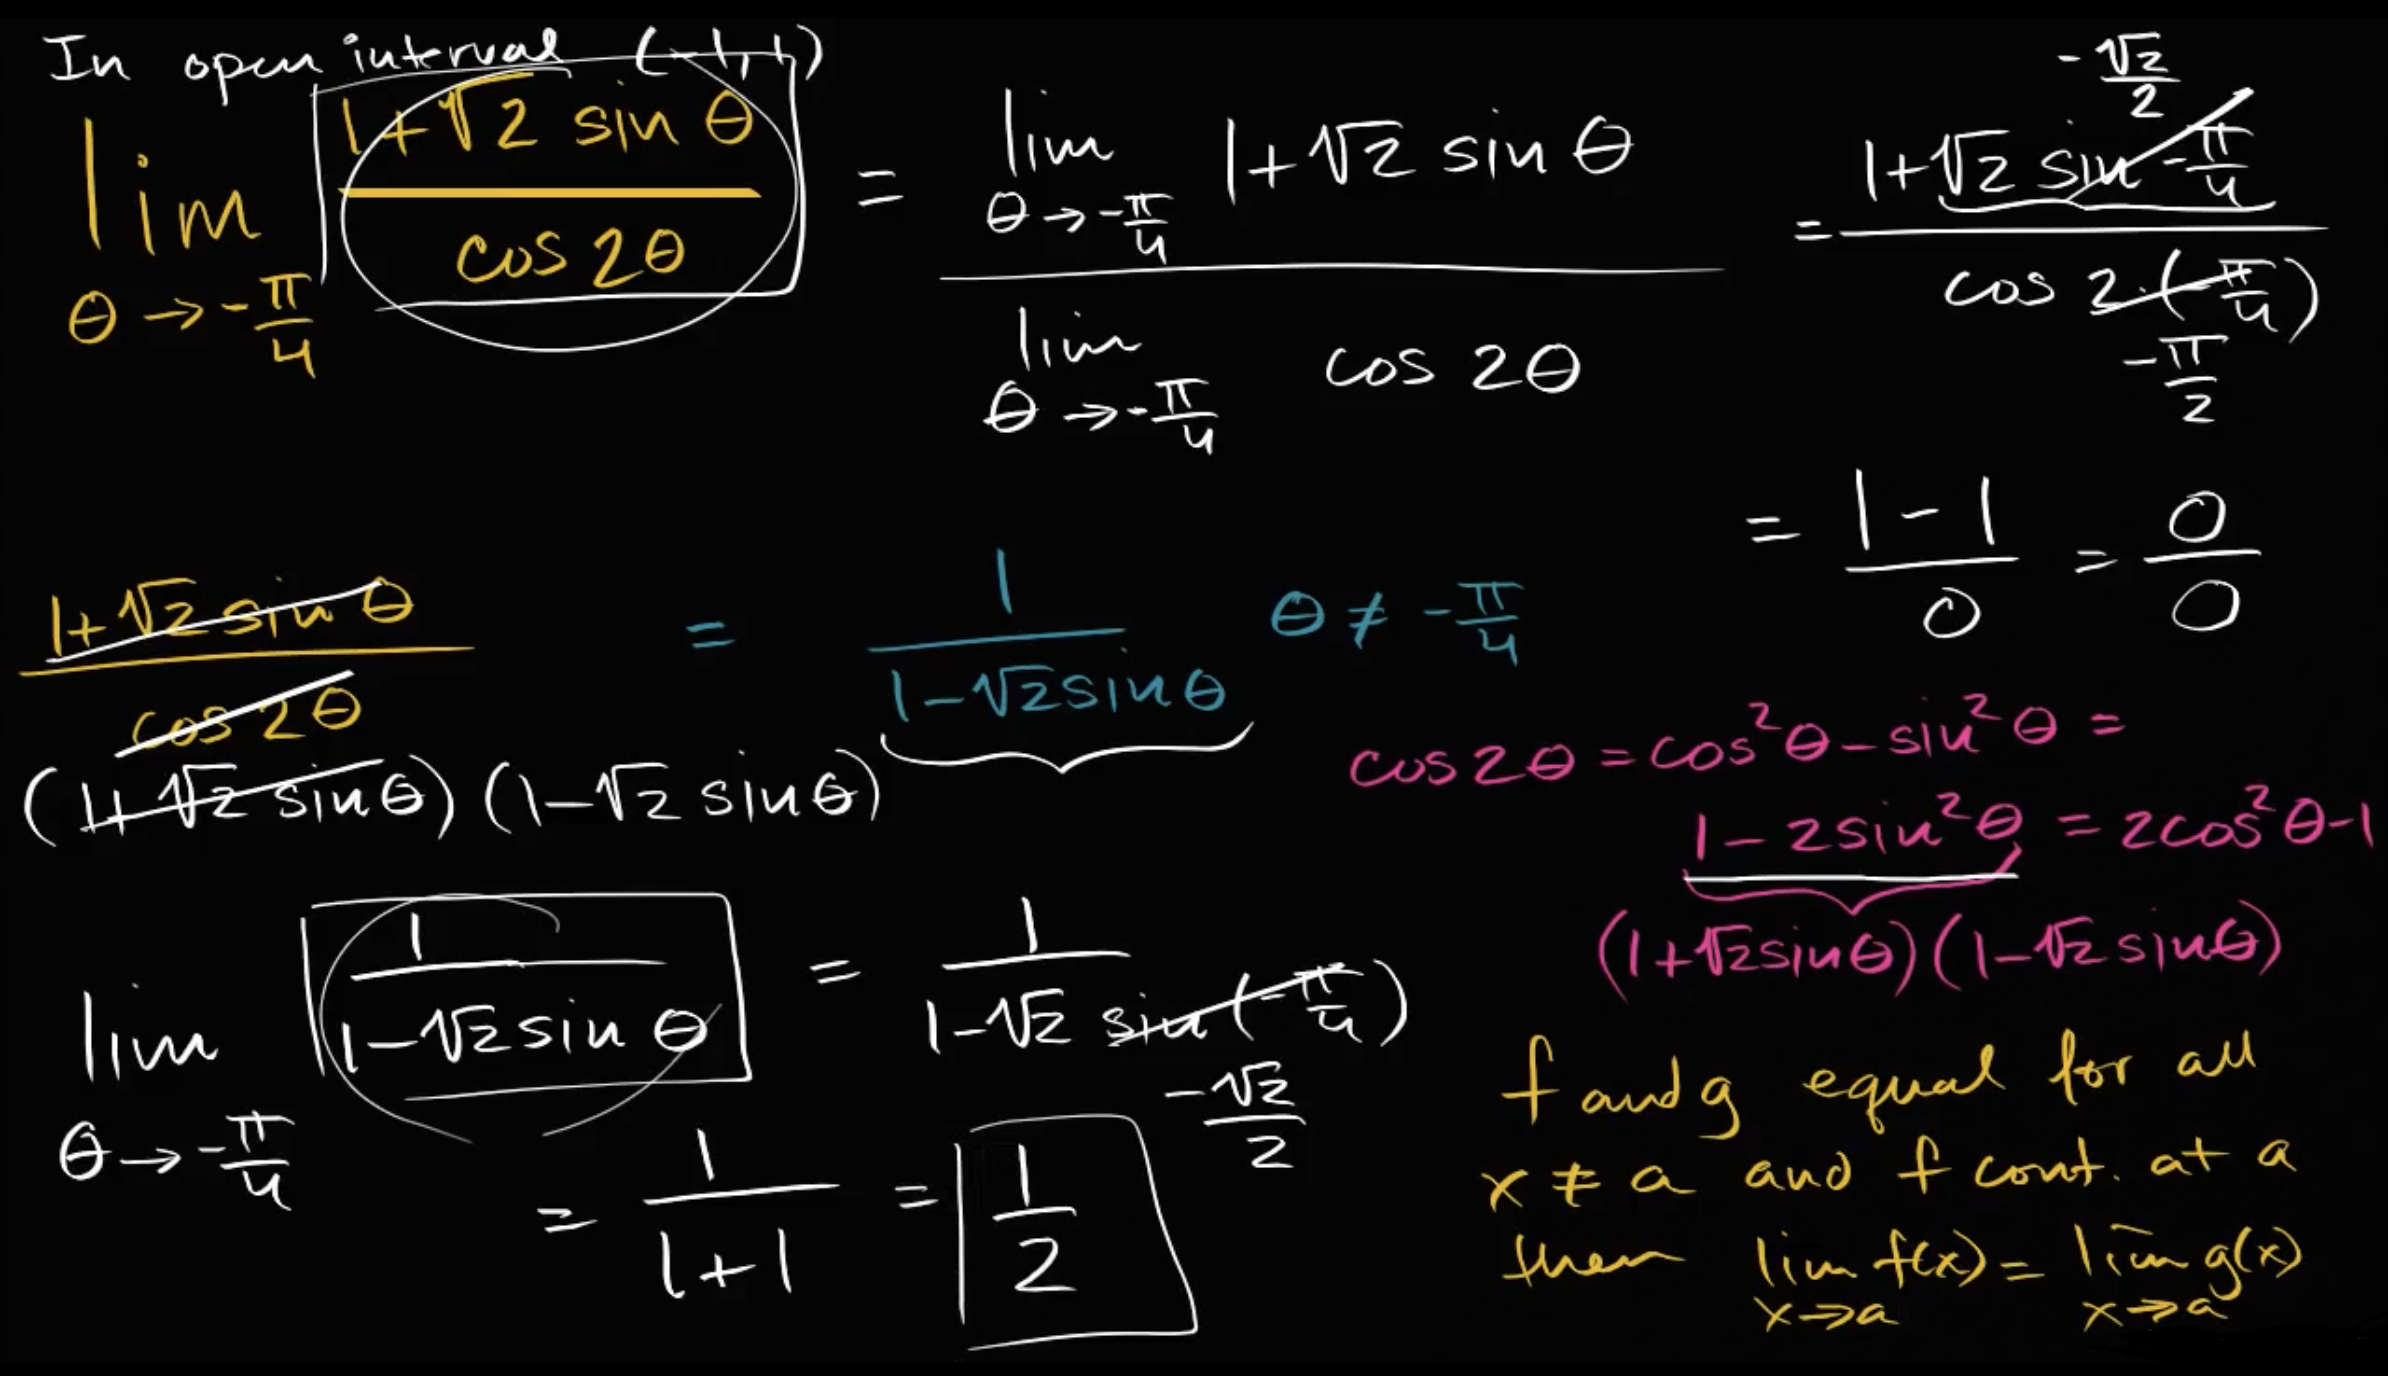 In open interval (-1, 1)
lim θ→-π/4 (1+√2 sin θ)/(cos 2θ) = (lim θ→-π/4 1+√2 sin θ)/(lim θ→-π/4 cos 2θ) = (1+√2 sin -π/4)/(cos 2·(-π/4))
-√2/2
-π/2
= (1-1)/0 = 0/0
(1+√2 sin θ)/(cos 2θ) = 1/(1-√2 sin θ) θ ≠ -π/4
(1+√2 sin θ)(1-√2 sin θ)
cos 2θ = cos²θ - sin²θ =
1 - 2sin²θ = 2cos²θ-1
(1+√2 sin θ)(1-√2 sin θ)
lim θ→-π/4 1/(1-√2 sin θ) = 1/(1-√2 sin(-π/4))
-√2/2
= 1/(1+1) = 1/2
f and g equal for all
x ≠ a and f cont. at a
then lim x→a f(x) = lim x→a g(x)